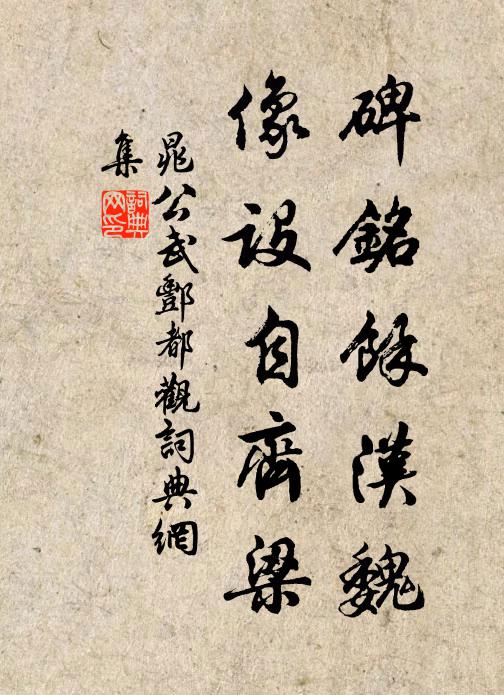 碑銘餘漢魏
像設自齊梁
晁公武酆都觀詞典網
集
詞典網印